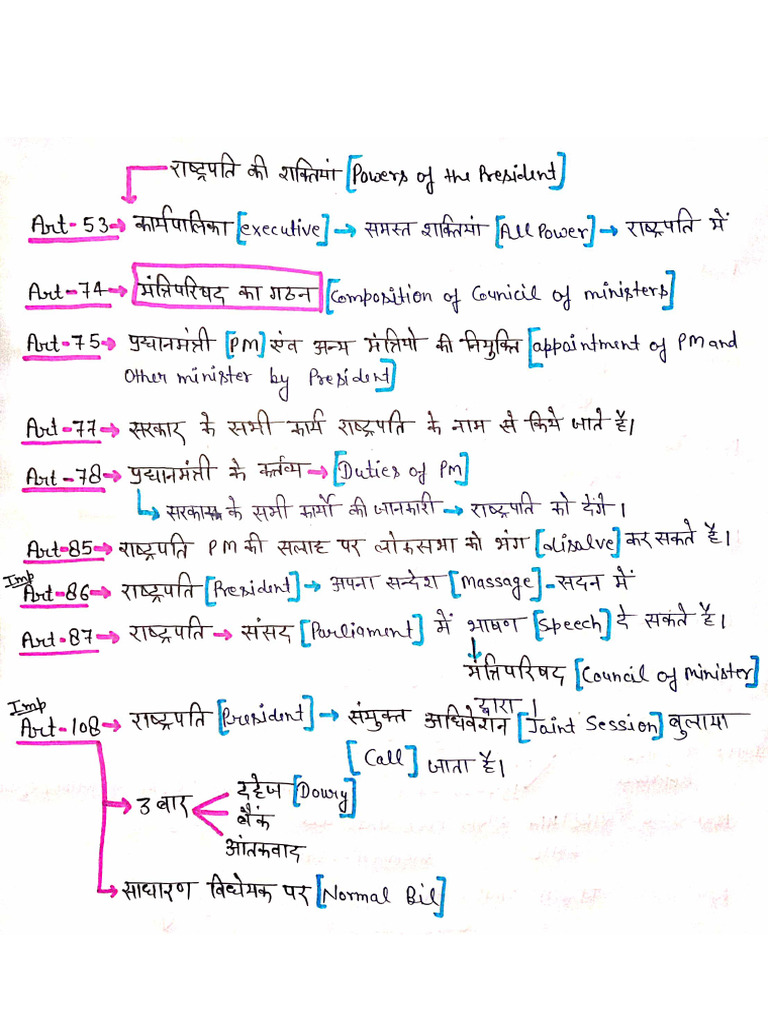 राष्ट्रपति की शक्तियां [Powers of the President]
Art-53→ कार्यपालिका [executive] → समस्त शक्तियां [All Power] → राष्ट्रपति में
Art-74→ मंत्रिपरिषद का गठन [Composition of Counicil of ministers]
Art-75→ प्रधानमंत्री [PM] संव अन्य मंत्रियो की नियुक्ति [appointment of PM and
Other minister by President]
Art-77→ सरकार के सभी कार्य राष्ट्रपति के नाम से किये जाते है।
Art-78→ प्रधानमंत्री के कर्तव्य → [Duties of PM]
↳ सरकार के सभी कार्यो की जानकारी → राष्ट्रपति को देंगे।
Art-85→ राष्ट्रपति PM की सलाह पर लोकसभा को भंग [disalve] कर सकते है।
Imp
Art-86→ राष्ट्रपति [President] → अपना सन्देश [Massage] - सदन में
Art-87→ राष्ट्रपति → संसद [Parliament] में भाषण [Speech] दे सकते है।
मंत्रिपरिषद [Council of Minister]
द्वारा।
Imp
Art-108→ राष्ट्रपति [President] → संयुक्त अधिवेशन [Joint Session] बुलाया
[Call] जाता है।
→ 3 बार
दहेज [Dowry]
बैंक
आंतकवाद
→ साधारण विधेयक पर [Normal Bil]